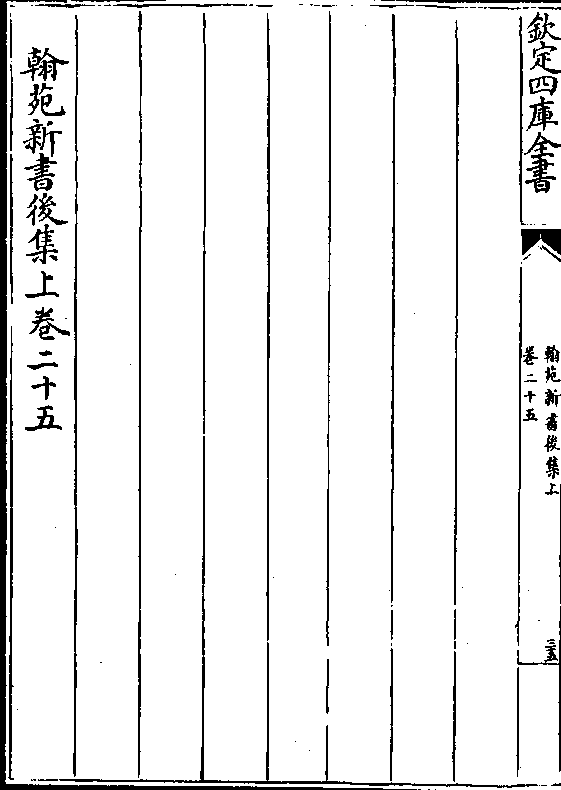 欽定四庫全書
翰苑新書後集上
卷二十五
三五
翰苑新書後集上卷二十五